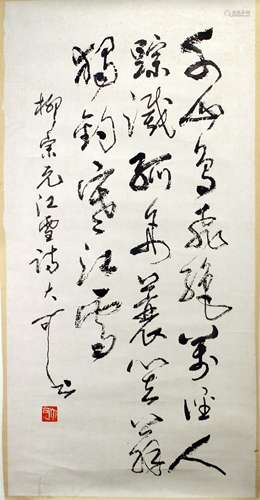 千山鳥飛絕萬徑人
踪滅孤舟蓑笠翁
獨釣寒江雪
柳宗元江雪詩大可